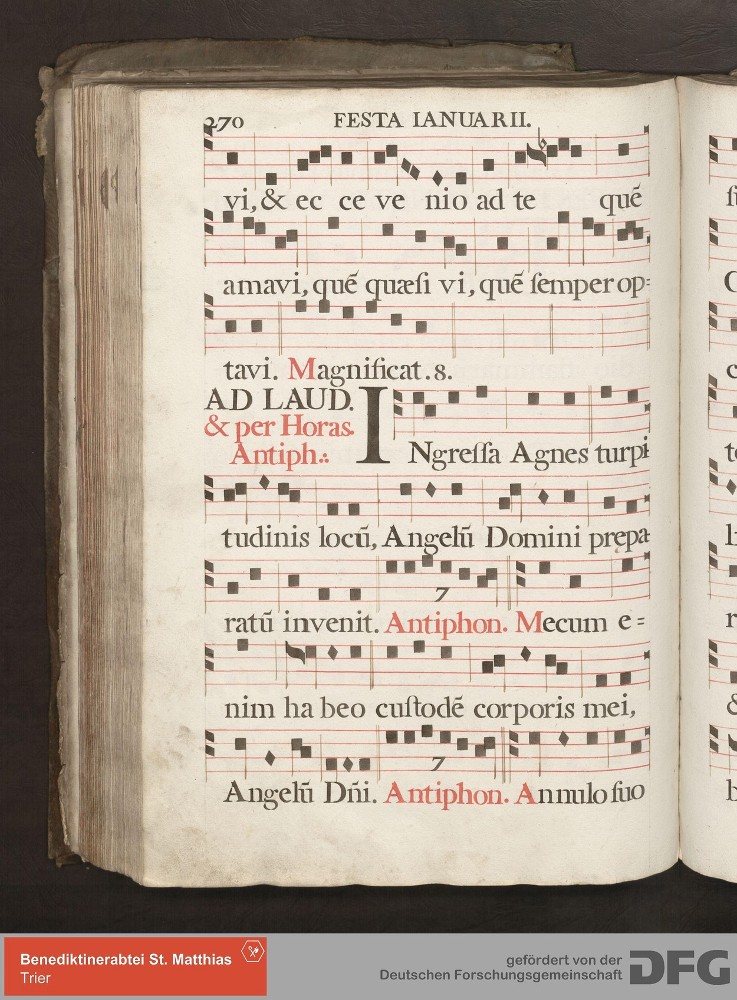 270 FESTA IANUARII.
vi, & ec ce ve nio ad te quē
amavi, quē quæſi vi, quē ſemper op=
tavi. Magnificat. 8.
AD LAUD.
& per Horas.
Antiph.:
INgreſſa Agnes turpi
tudinis locū, Angelū Domini prępa
7
ratū invenit. Antiphon. Mecum e=
nim ha beo cuſtodē corporis mei,
7
Angelū Dn̄i. Antiphon. Annulo ſuo
Benediktinerabtei St. Matthias
Trier
gefördert von der
Deutschen Forschungsgemeinschaft
DFG